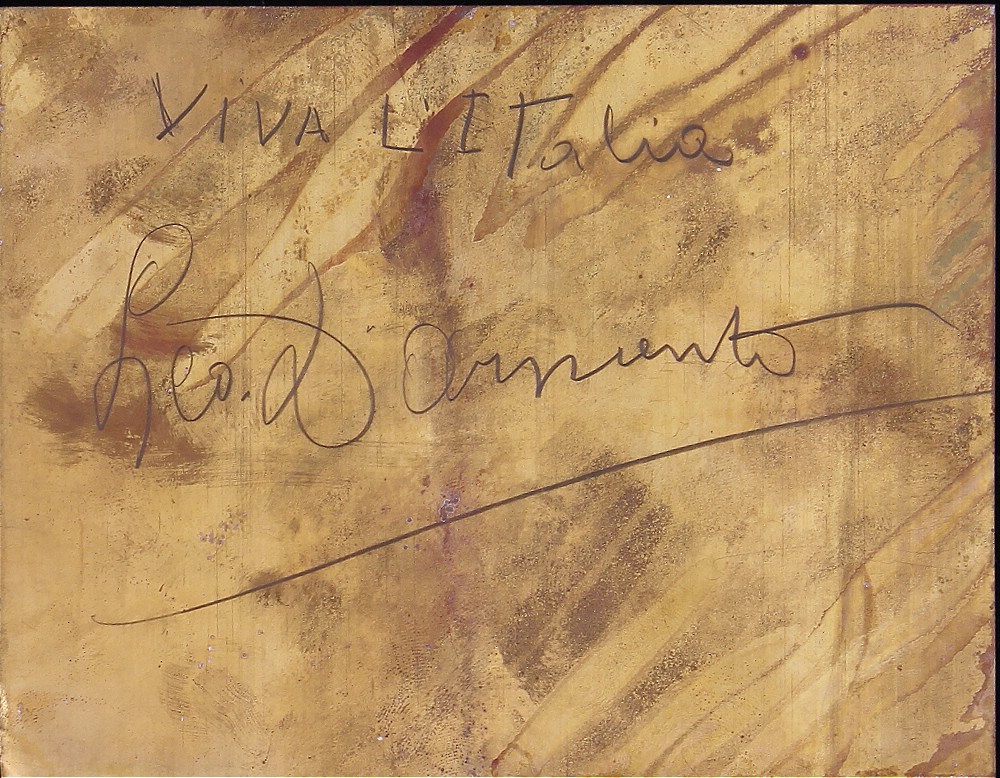 VIVA L'ITalia
Leo. Sarmiento